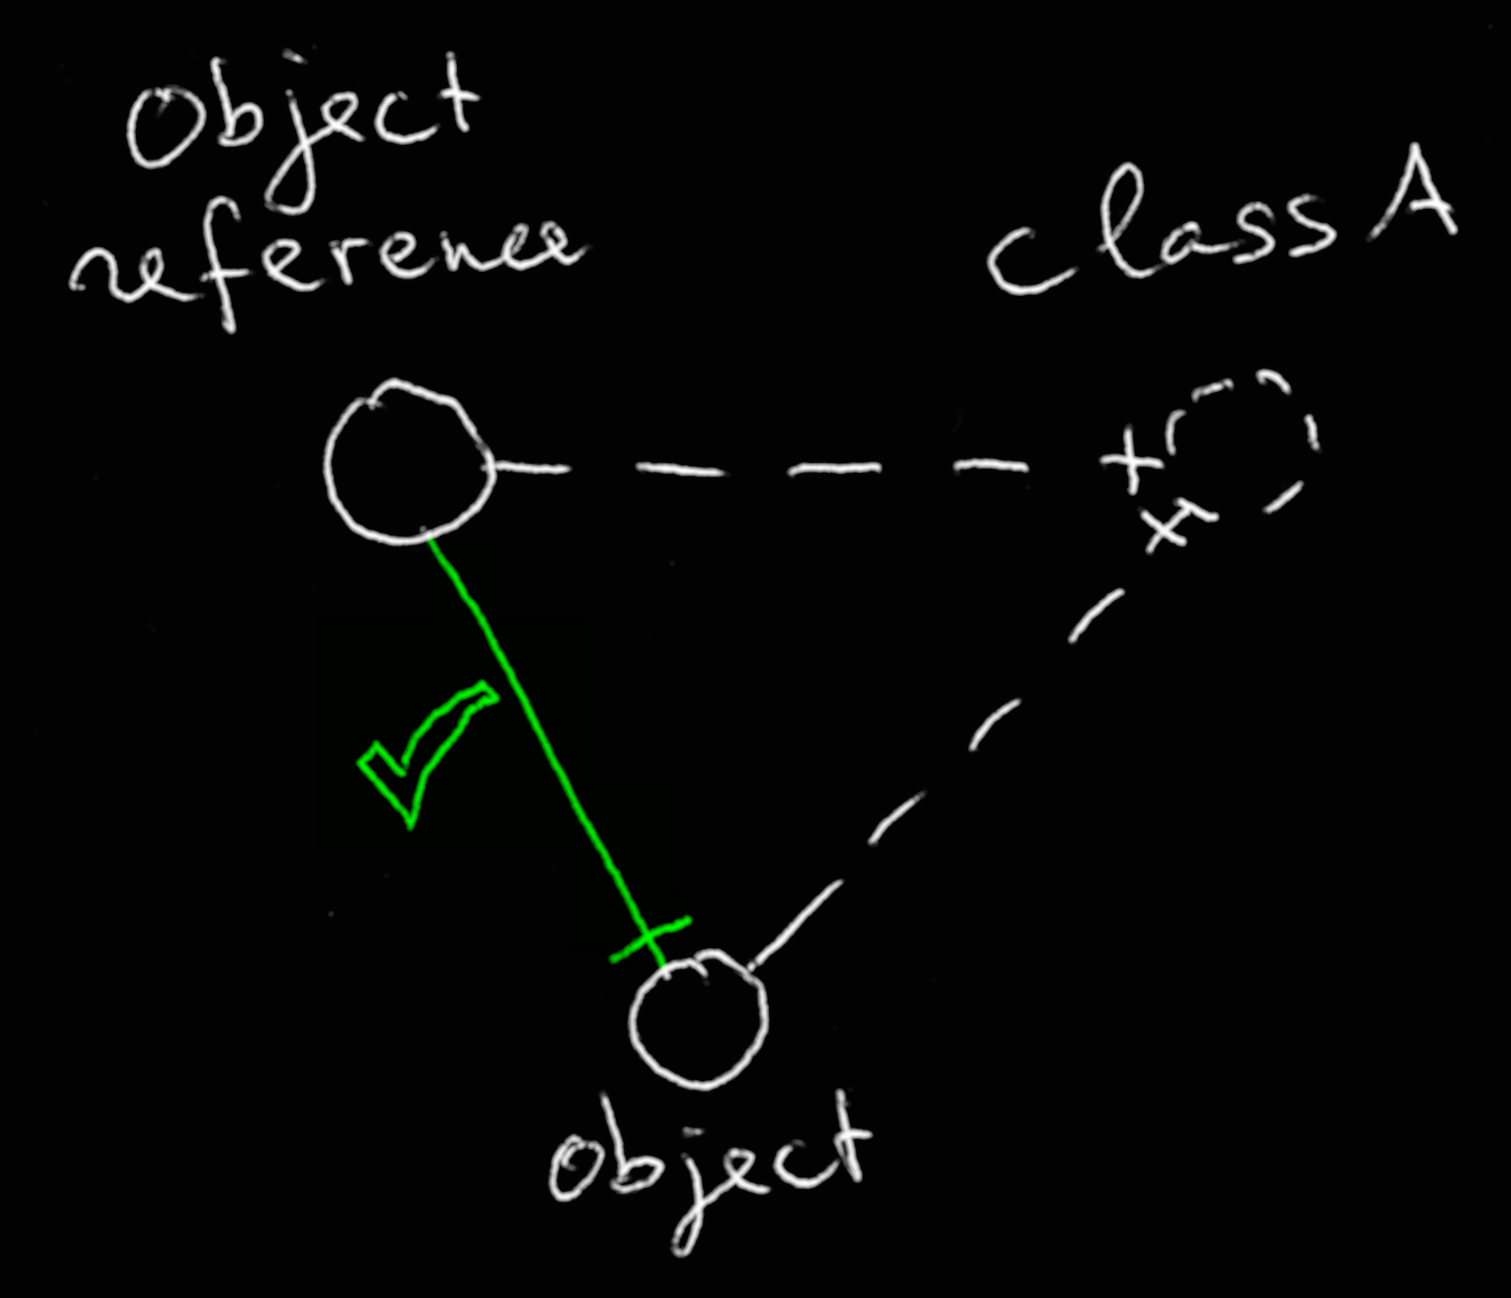 Object
reference
class A
object